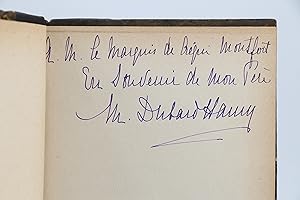 A. M. le Marquis de Créqui Montfort
En Souvenir de Mon Père
M. Dubard Hamy